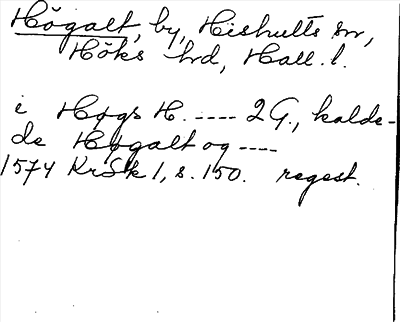 Högalt, by, Hishults sn,
Höks hrd, Hall. l.
i Høgs H. ---- 2 G., kalde-
de Høgalt og ----
1574 KrSk 1, s. 150. regest.